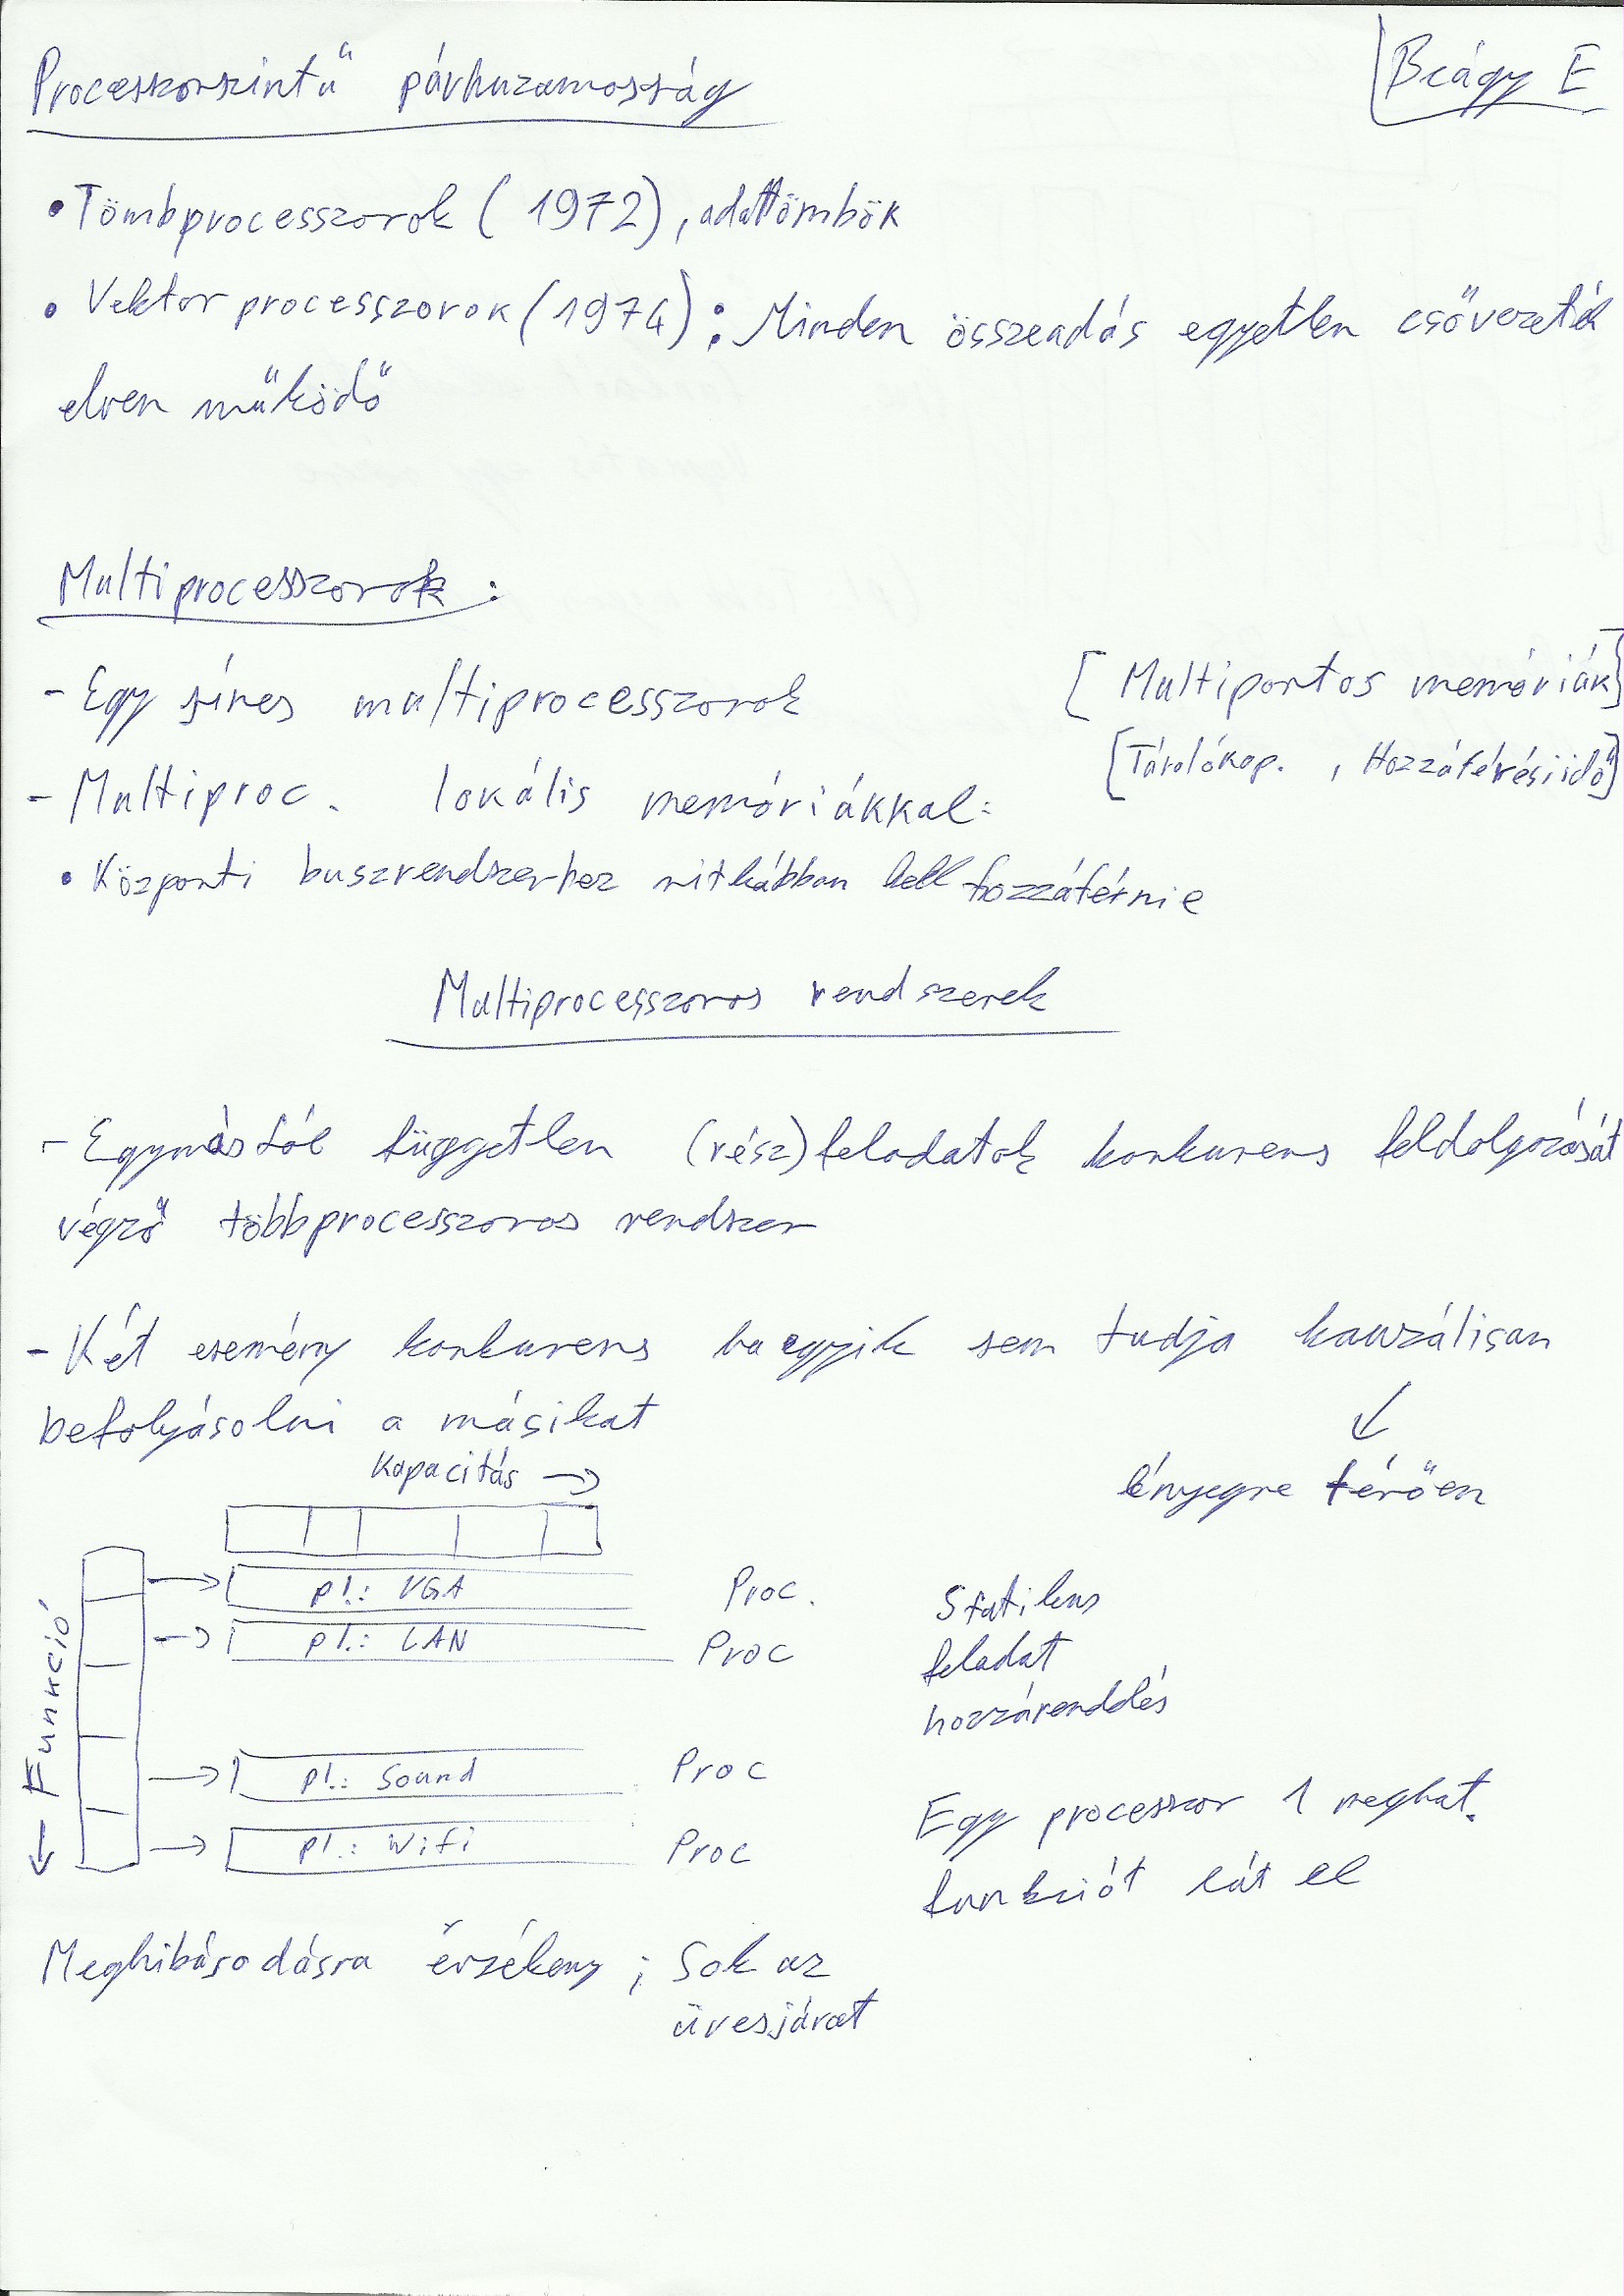 Processzorszintű párhuzamosság
Beágy E
• Tömbprocesszorok (1972), adattömbök
• Vektorprocesszorok (1974): Minden összeadás egyetlen csővezeték
elven működő
Multiprocesszorok:
- Egy sínes multiprocesszorok
[Multiportos memóriák]
[Tárolókap. , Hozzáférési idő]
- Multiproc. lokális memóriákkal:
• Központi buszrendszerhez ritkábban kell hozzáférnie
Multiprocesszoros rendszerek
- Egymástól független (rész)feladatok konkurens feldolgozását
végző többprocesszoros rendszer
- Két esemény konkurens ha egyik sem tudja kauzálisan
befolyásolni a másikat
↙
lényegre törően
Kapacitás →
← Funkció
→ pl.: VGA Proc.
→ pl.: LAN Proc
→ pl.: Sound Proc
→ pl.: Wifi Proc
Statikus
feladat
hozzárendelés
Egy processzor 1 meghat.
funkciót lát el
Meghibásodásra érzékeny ; Sok az
üresjárat